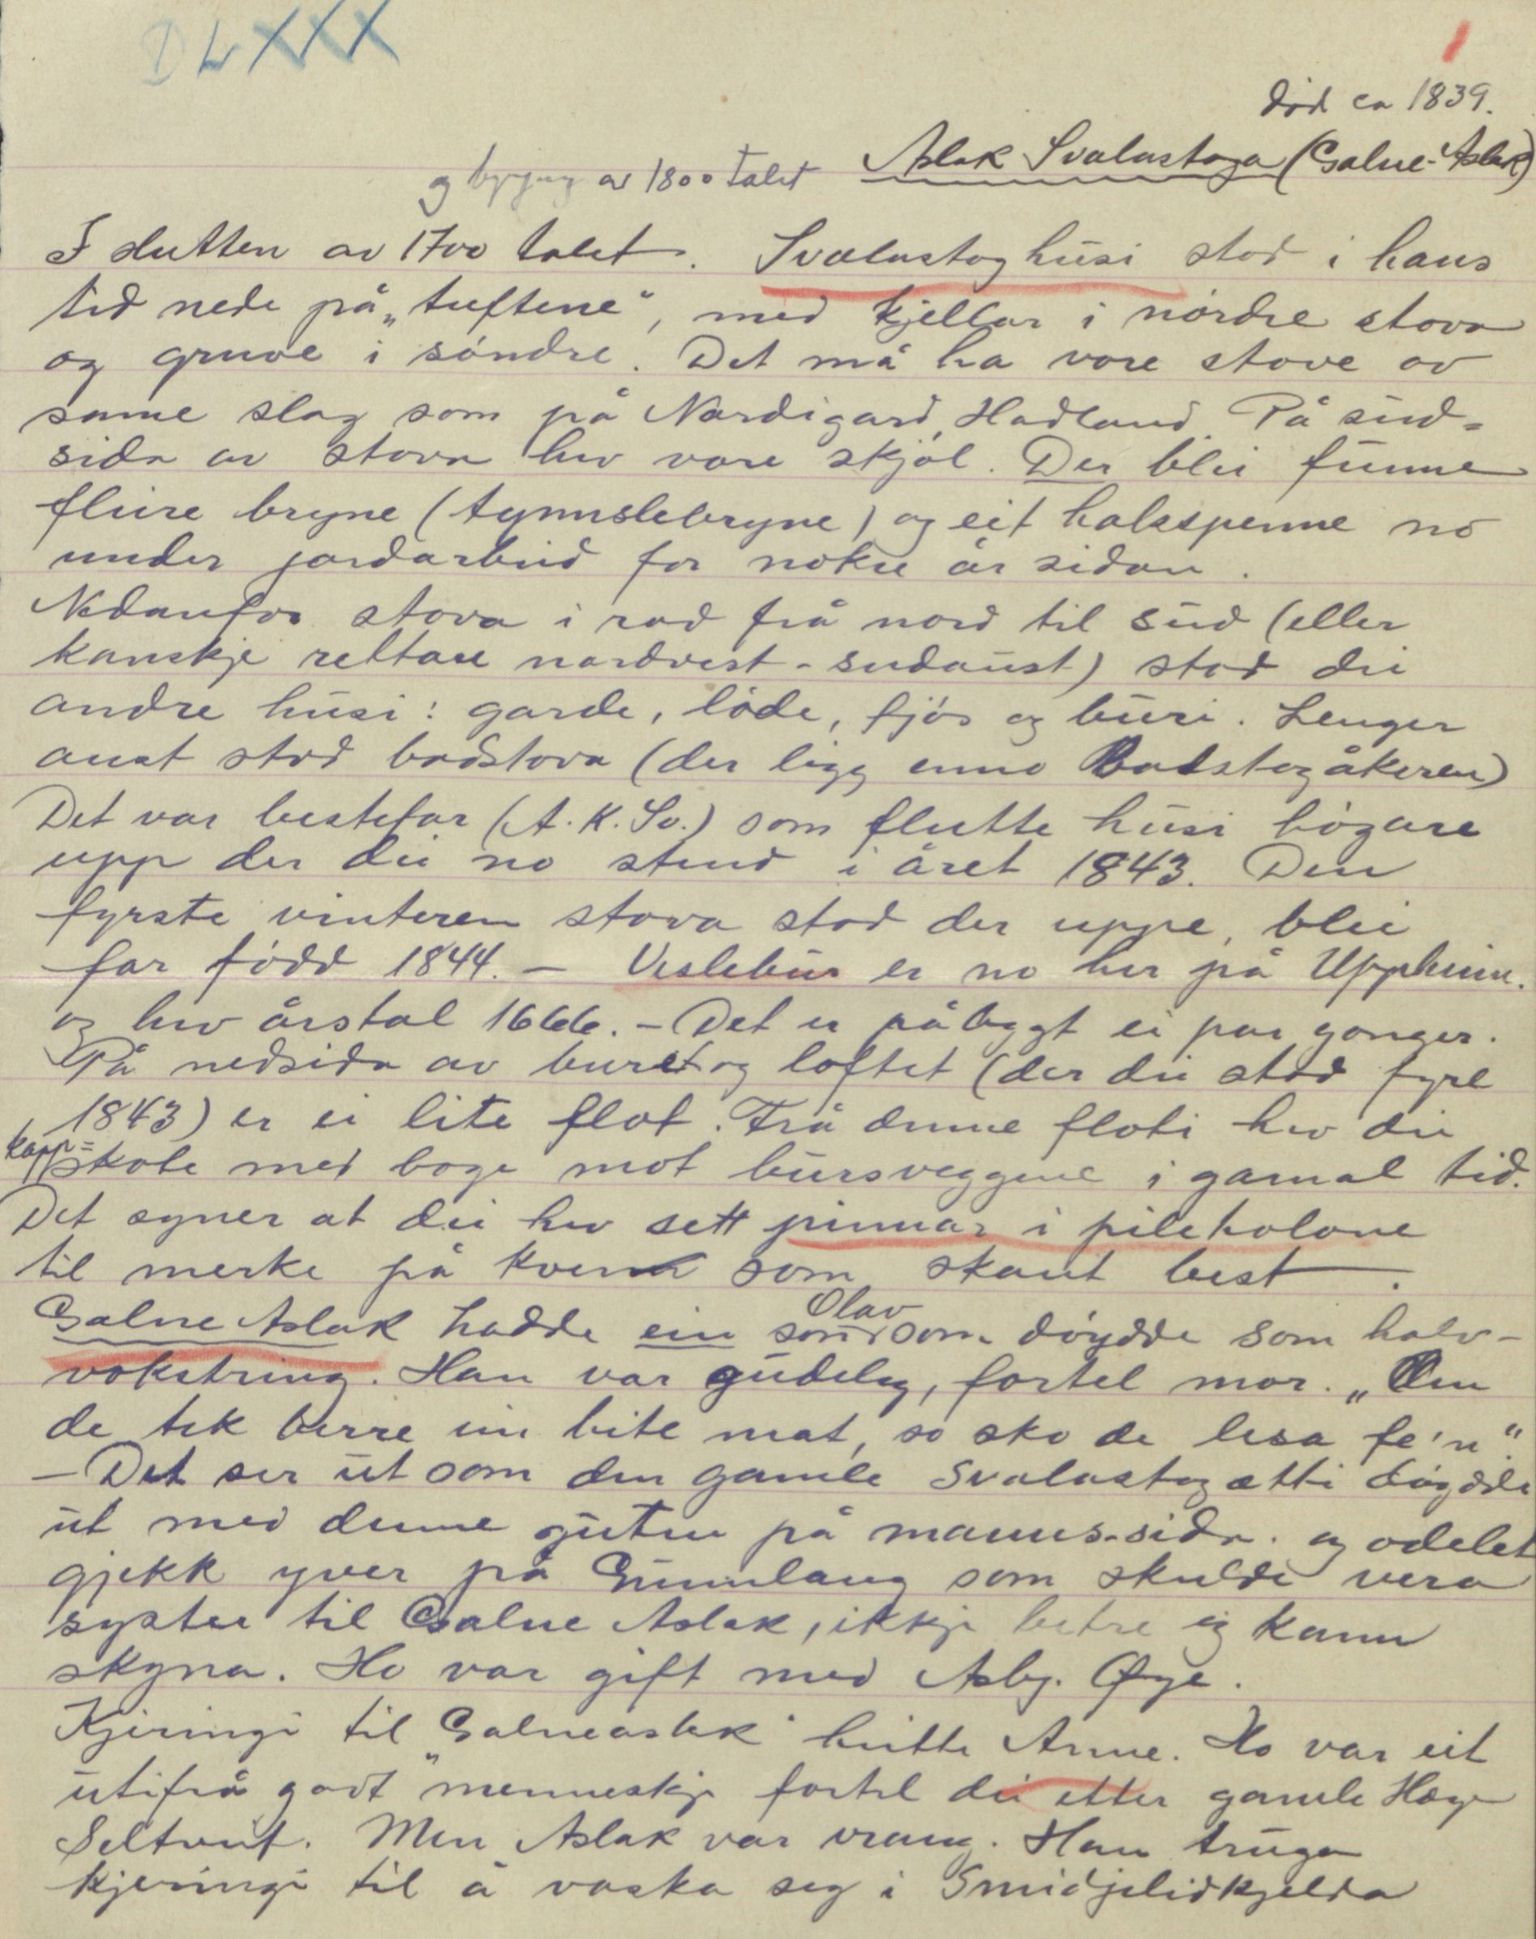 DLXXX
1
død ca 1839.
Aslak Svalastoga (Galne-Aslak)
og bygjing av 1800 talet
I slutten av 1700 talet. Svalastoghusi stod i hans
tid nede på „tuftene", med kjellar i nørdre stova
og gruve i søndre. Det må ha vore stove av
same slag som på Nordigard, Hadland. På sud-
sida av stova hev vore skjol. Der blei funne
fleire bryne (tynnslebryne) og eit halsspenne no
under jordarbeid for nokre år sidan.
Nedanfor stova i rad frå nord til sud (eller
kanskje rettare nordvest-sudaust) stod dei
andre husi: garde, løde, fjøs og buri. Lenger
aust stod badstova (der ligg enno Badstogåkeren)
Det var bestefar (A. K. Sv.) som flutte husi høgare
upp der dei no stend i året 1843. Den
fyrste vinteren stova stod der uppe, blei
far fødd 1844. – Veslebur er no her på Uppheim.
og hev årstal 1666. – Det er påbygt ei par gonger.
På nedsida av buret og loftet (der dei stod fyre
1843) er ei lite flot. Frå denne floti hev dei
kapp=
skote med boge mot bursveggene i gamal tid.
Det syner at dei hev sett pinnar i pileholone
til merke på kven som skaut best.
Galne Aslak hadde ein son Olav som døydde som halv-
vokstring. Han var gudeleg, fortel mor. „Om
de tek berre ein bite mat, so sko de lesa fe'n".
– Det ser ut som den gamle Svalastogætti døydde
ut med denne guten på manns-sida. og odelet
gjekk yver på Gunnlaug som skulde vera
syster til Galne Aslak, ikkje betre eg kann
skyna. Ho var gift med Asbj. Øye.
Kjeringi til „Galneaslak" heitte Anne. Ho var eit
utifrå godt menneskje fortel dei etter gamle Hæge
Seltveit. Men Aslak var vrang. Han truga
kjeringi til å vaska seg i Smidjelidkjelda